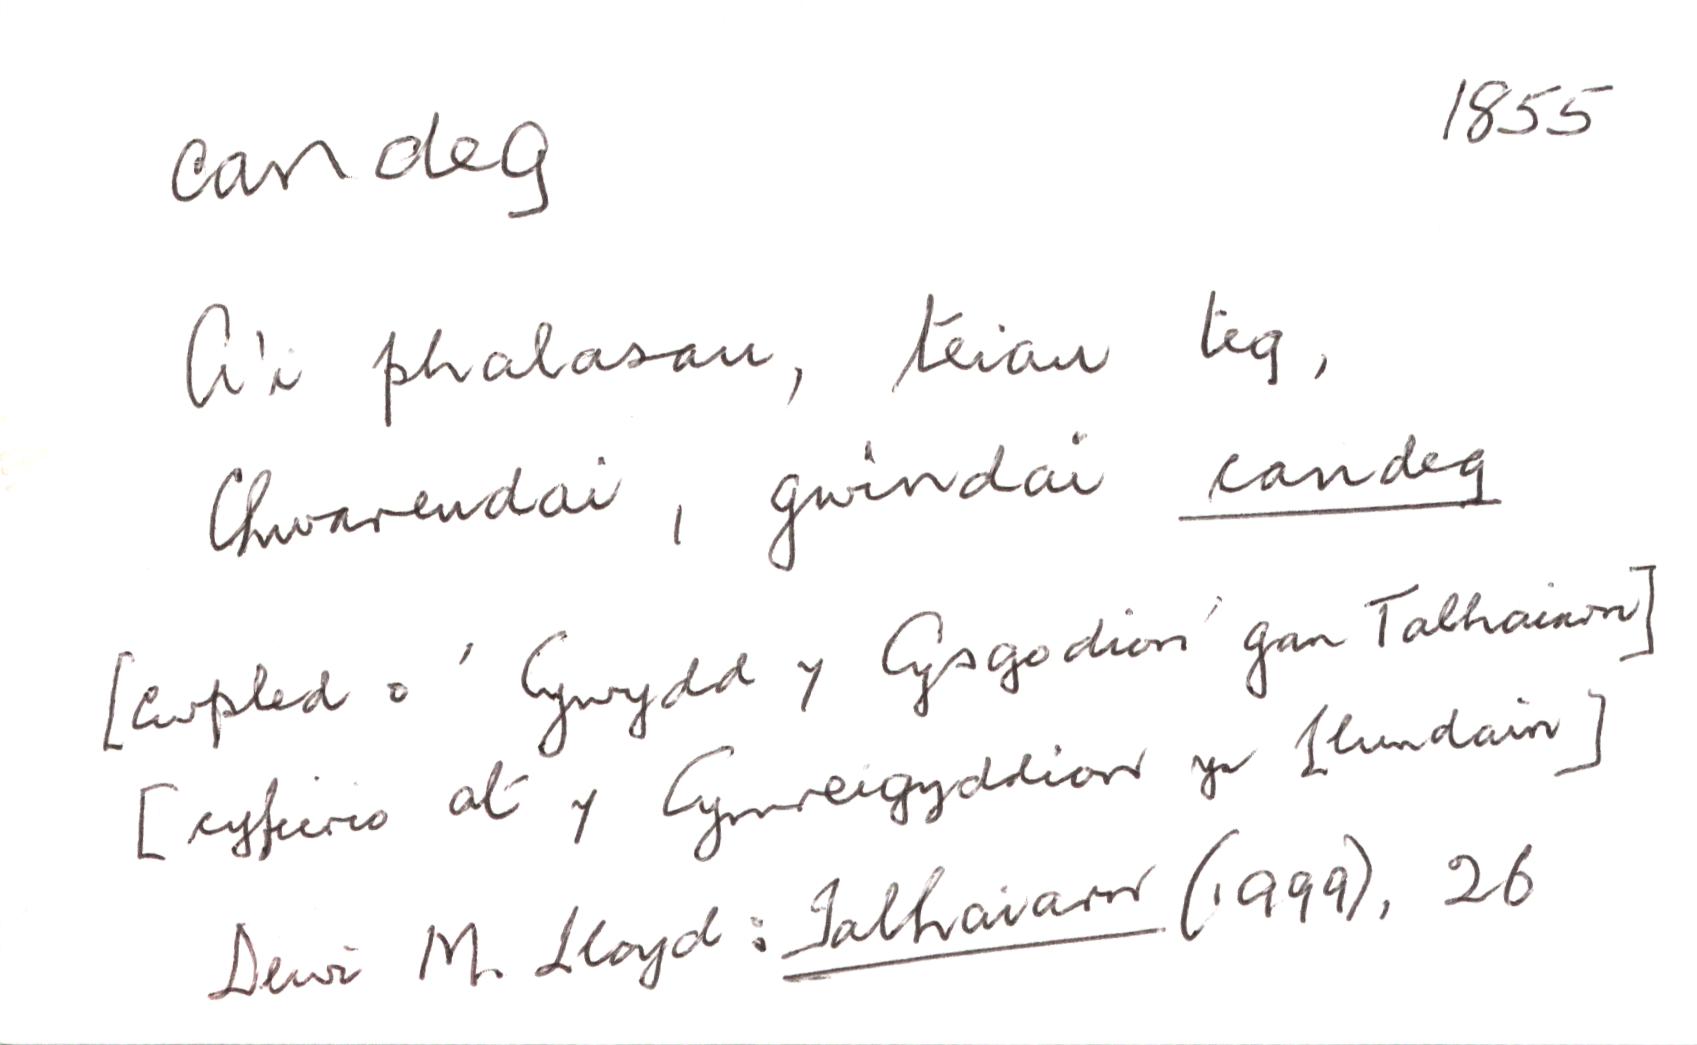 candeg 1855
A'i phalasau, teiau teg,
Chwarendai, gwindai candeg
[cwpled o 'Cywydd y Cysgodion' gan Talhaiarn]
[cyfeirio at y Cymreigyddion yn Llundain]
Dewi M. Lloyd: Talhaiarn (1999), 26